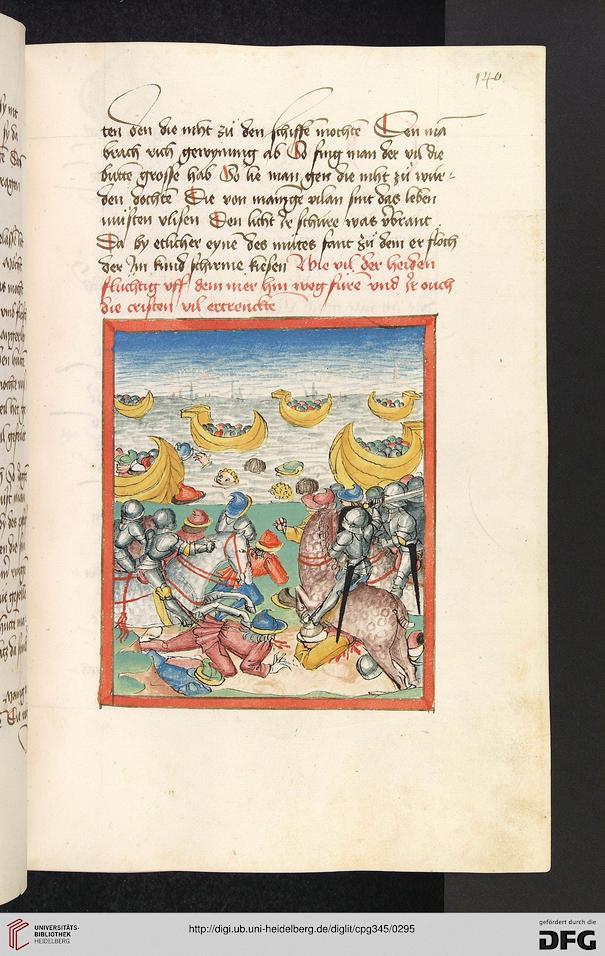 140
ten den die niht zü den schiffe mochte Den mā
brach rich gewynnūg ab So fing man der vil die
butte grosse hab So lie man gen die niht zü wur-
den dochte Die von man vilan sint das leben
musten vlisen Den licht jr schare was vbrant
Da by etlicher eyne des mutes fant zü dem er floch
der jm kind schirme kiesen Wie vil der heiden
fluchtig vff dem mer hin weg fure vnd jr ouch
die cristen vil ertrenckte
UNIVERSITÄTS-
BIBLIOTHEK
HEIDELBERG
http://digi.ub.uni-heidelberg.de/diglit/cpg345/0295
gefördert durch die
DFG